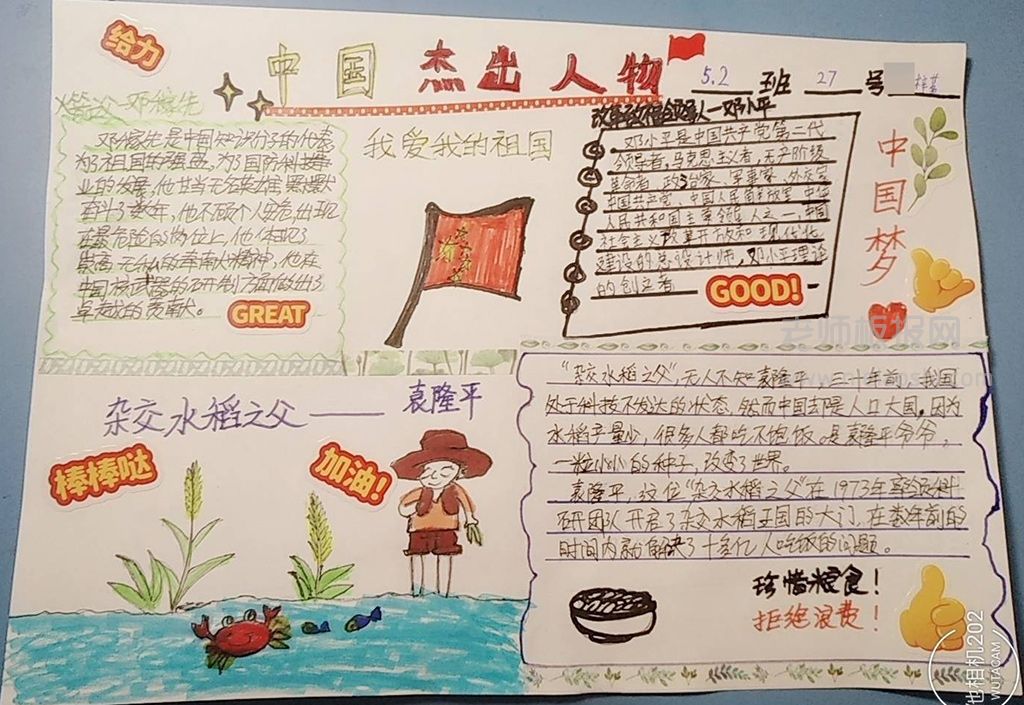 给力
中国 杰出人物
5.2 班 27 号
邓稼先是中国知识分子的代表
为了祖国的强盛,为了国防科
业的发展,他甘当无名英雄,默默
奋斗了数年,他不顾个人安危,出现
在最危险的岗位上,他体现了
崇高无私的奉献精神,他在
中国核武器的研制方面做出了
卓越的贡献。
GREAT
我爱我的祖国
改革开放领导人—邓小平
邓小平是中国共产党第二代
领导者,马克思主义者,无产阶级
革命者,政治家、军事家、外交家
中国共产党、中国人民解放军、中华
人民共和国主要领导人之一,中国
社会主义改革开放和现代化
建设的总设计师,邓小平理论
的创立者
GOOD!
中国梦
老师板报网
杂交水稻之父——袁隆平
棒棒哒
加油!
“杂交水稻之父”,无人不知袁隆平,三十年前,我国
处于科技不发达的状态,然而中国却是人口大国,因为
水稻产量少,很多人都吃不饱饭。是袁隆平爷爷,
一粒小小的种子,改变了世界。
袁隆平,这位“杂交水稻之父”在1973年率领科
研团队开启了杂交水稻王国的大门,在数年前的
时间内就解决了十多亿人吃饭的问题。
珍惜粮食!
拒绝浪费!
相机202
WUTACAM